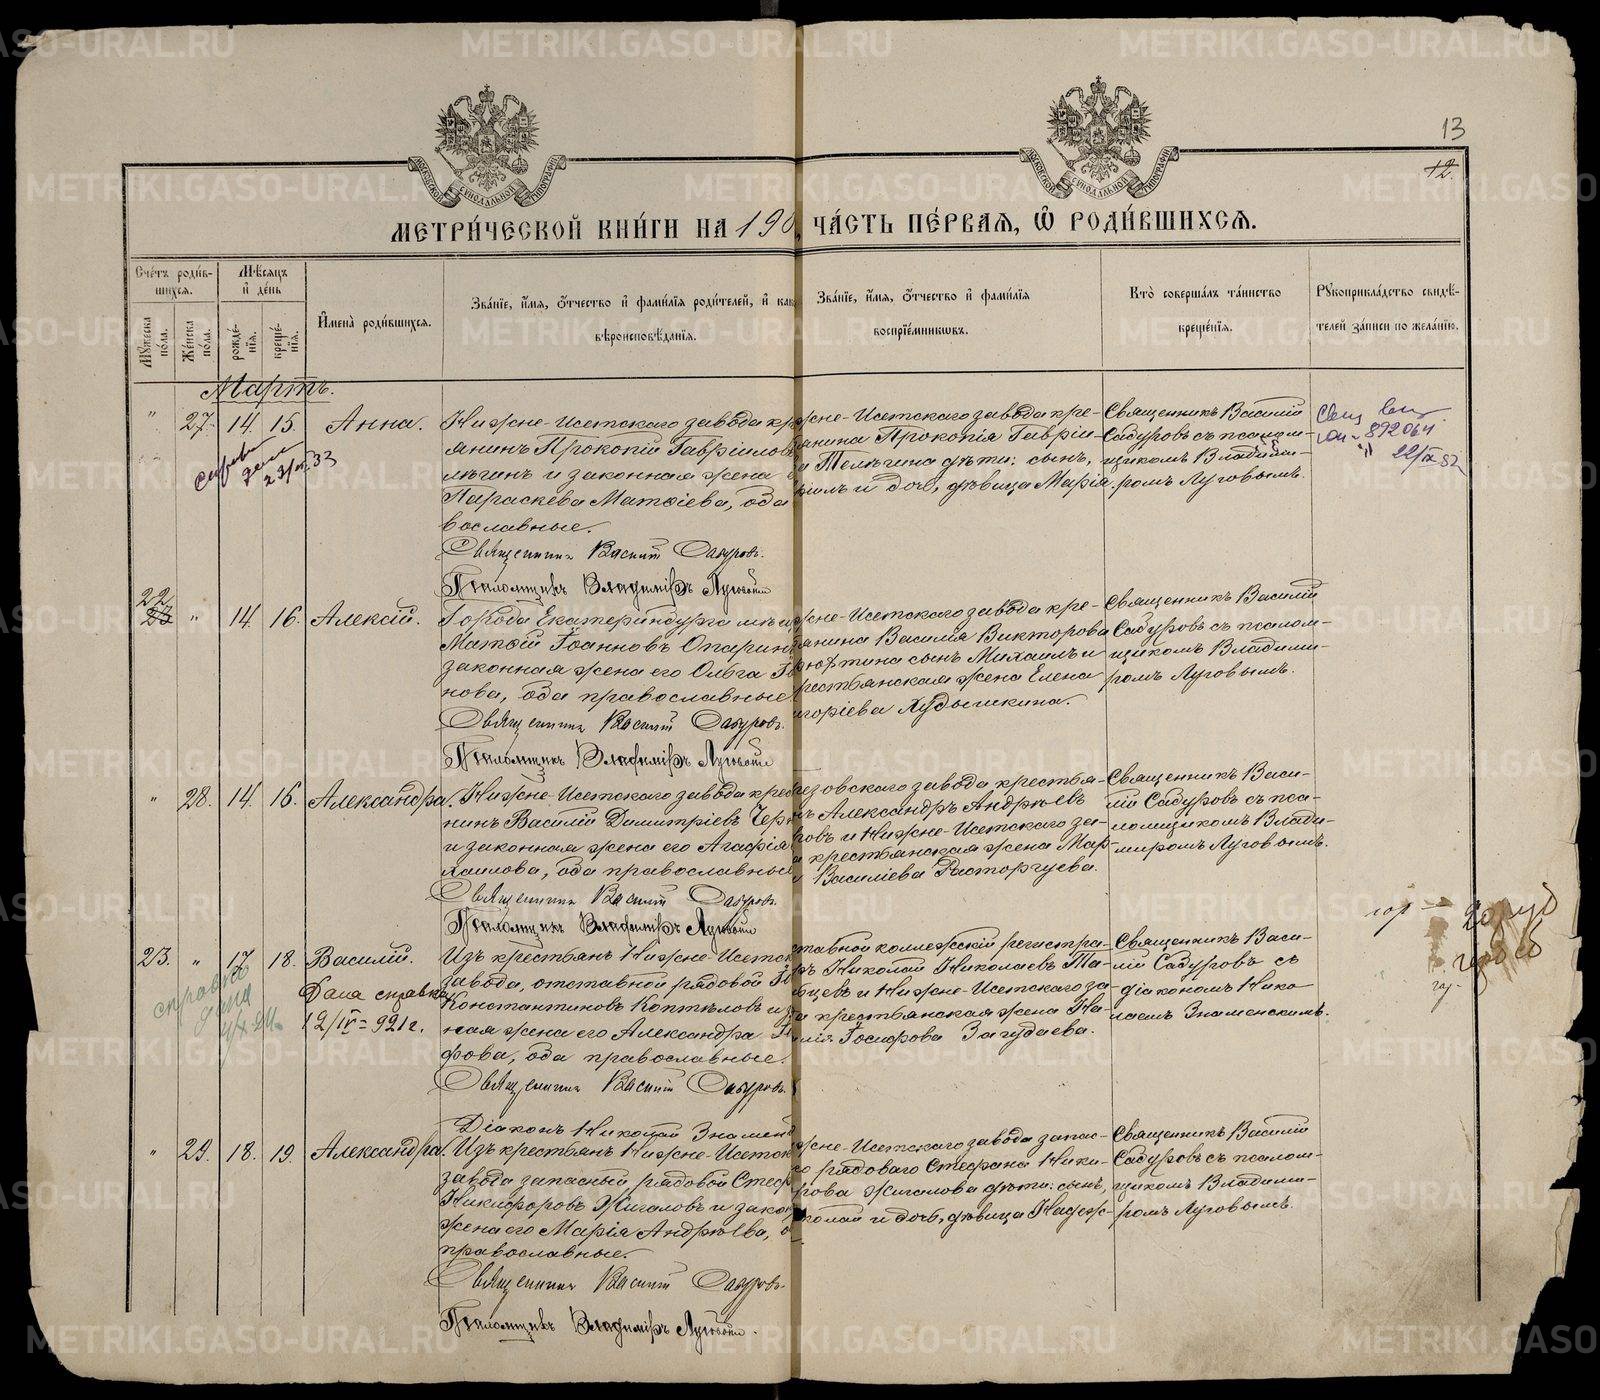 13
12.
МЕТРИ́ЧЕСКОЙ КНИ́ГИ НА 190
ЧА́СТЬ ПЕ́РВАЯ, Ѽ РОДИ́ВШИХСЯ.
Сче́тъ роди́в-
шихся.
Му́жеска по́ла.
Же́нска по́ла.
Мѣ́сяцъ
и҆ де́нь
рожде́-
нїя.
креще́-
нїя.
И҆мена̀ роди́вшихся.
Зва́нїе, и҆́мя, ѻ҆́тчество и҆ фами́лїя роди́телей, и҆ как
вѣроисповѣ́данїя.
Зва́нїе, и҆́мя, ѻ҆́тчество и҆ фами́лїя
воспрїе́мниковъ.
Кто̀ соверша́лъ та́инство
креще́нїя.
Рꙋкоприкла́дство свидѣ́-
телей за́писи по жела́нїю.
Мартъ.
" 27. 14. 15. Анна.
Нижне-Исетскаго завода кр
янинъ Прокопій Гавріилов
лѣгинъ и законная жена
Параскева Матѳіева, оба
вославные.
Священникъ Василій Сабуровъ.
Псаломщикъ Владиміръ Луговыхъ
жне-Исетскаго завода кре-
янина Прокопія Гавріи-
а Телѣгина дѣти: сынъ,
ріилъ и дочь, дѣвица Марія.
Священникъ Василій
Сабуровъ съ псалом-
щикомъ Владимі-
ромъ Луговымъ.
892064
22/IX 52
23/VI 33
22
23 " 14. 16. Алексій.
Города Екатеринбурга мѣщ
Матѳій Іоанновъ Опарин
законная жена его Ольга
нова, оба православные
Священникъ Василій Сабуровъ.
Псаломщикъ Владиміръ Луговыхъ
жне-Исетскаго завода кре-
янина Василія Викторова
сынъ Михаилъ и
рестьянская жена Елена
игоріева Лудышкина.
Священникъ Василій
Сабуровъ съ псалом-
щикомъ Владимі-
ромъ Луговымъ.
" 28. 14. 16. Александра.
Нижне-Исетскаго завода крес
нинъ Василій Димитріевъ Чер
и законная жена его Агафія
хаилова, оба православные
Священникъ Василій Сабуровъ.
Псаломщикъ Владиміръ Луговыхъ
езовскаго завода крестья-
ъ Александръ Андреевъ
ровъ и Нижне-Исетскаго за-
а крестьянская жена Мар-
Василіева Расторгуева.
Священникъ Васи-
лій Сабуровъ съ пса-
ломщикомъ Влади-
міромъ Луговымъ.
23. " 17. 18. Василій.
справка
дана
Дана справка
12/IV = 921 г.
Изъ крестьянъ Нижне-Исетск
завода, отставной рядовой
Константиновъ Коптѣловъ и
ная жена его Александра
фова, оба православные.
Священникъ Василій Сабуровъ.
Діаконъ Николай Знамен
тавной коллежскій регистра-
ръ Николай Николаевъ Та-
бцевъ и Нижне-Исетскаго за-
а крестьянская жена На-
лія Іосифова Загудаева.
Священникъ Васи-
лій Сабуровъ съ
діакономъ Нико-
лаемъ Знаменскимъ.
" 29. 18. 19. Александра.
Изъ крестьянъ Нижне-Исетск
завода запасный рядовой Стеф
Никифоровъ Жигаловъ и зако
жена его Марія Андреева, о
православные.
Священникъ Василій Сабуровъ.
Псаломщикъ Владиміръ Луговыхъ.
жне-Исетскаго завода запас-
о рядоваго Стефана Ники-
рова Жигалова дѣти: сынъ,
колай и дочь, дѣвица Надеж-
Священникъ Василій
Сабуровъ съ псалом-
щикомъ Владимі-
ромъ Луговымъ.
METRIKI.GASO-URAL.RU